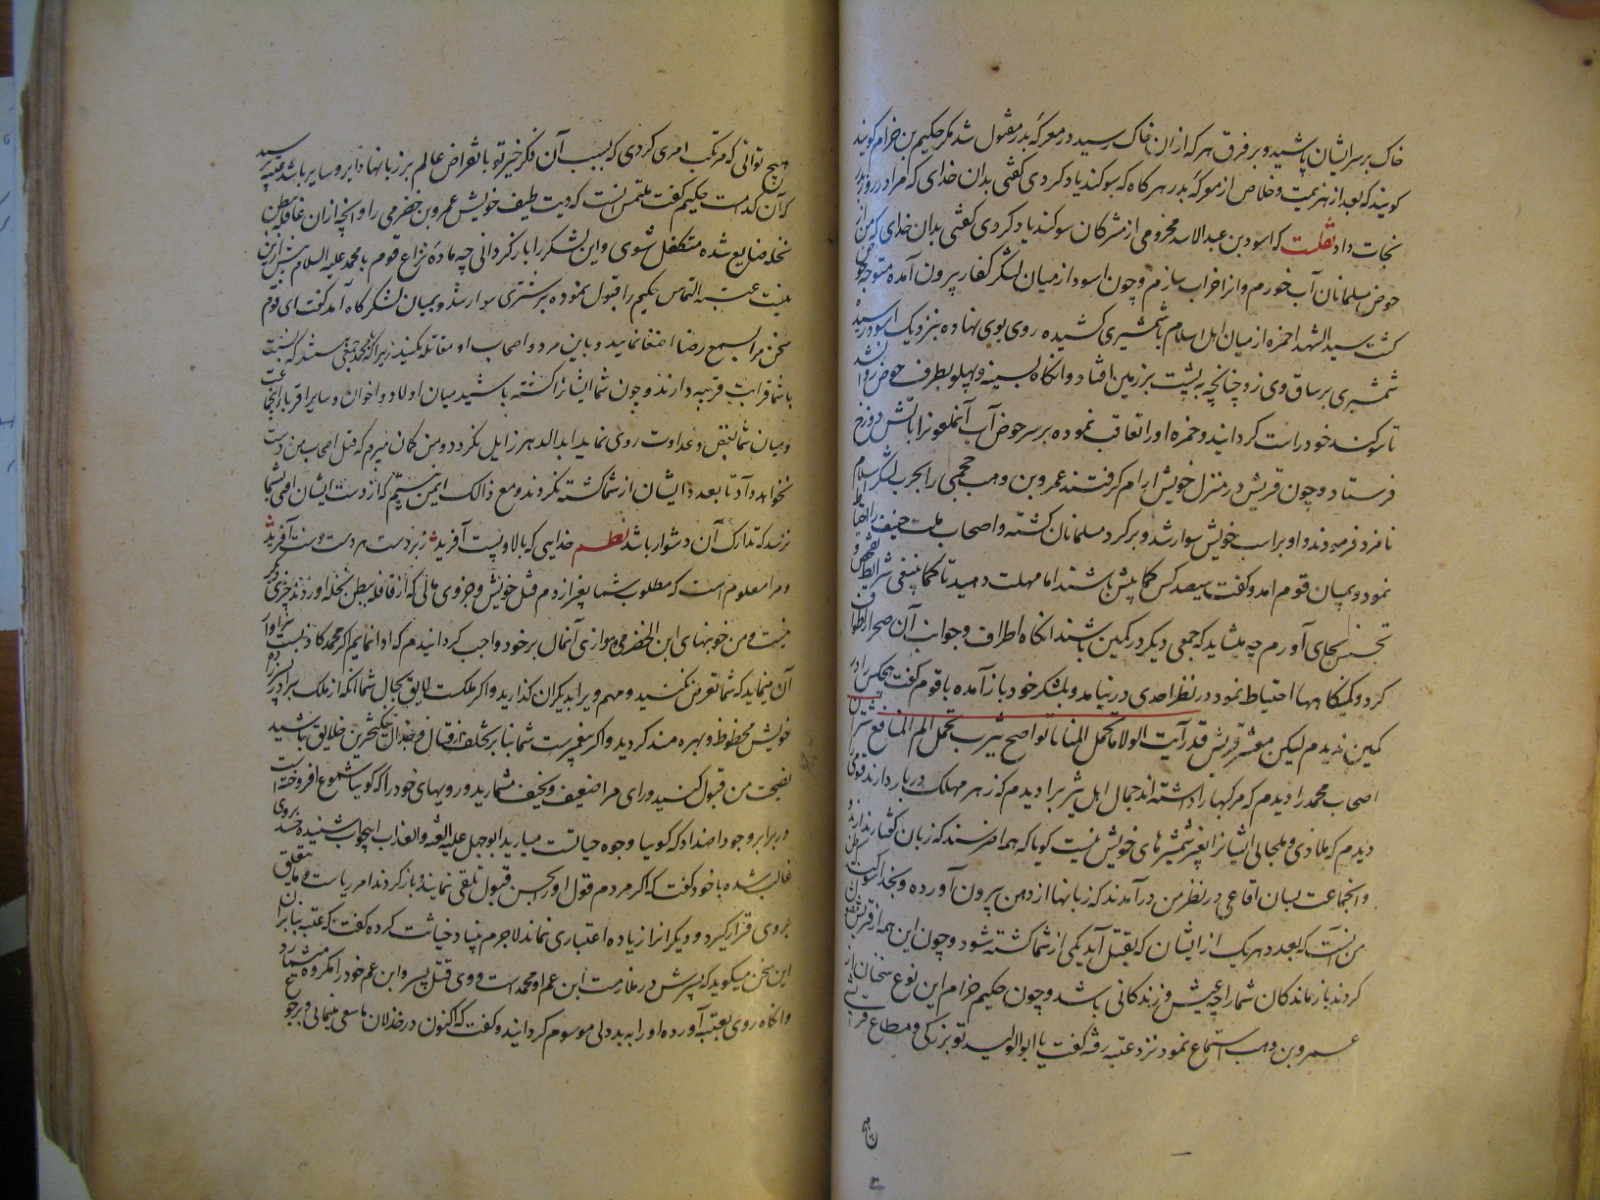 خاک بر سر ایشان پاشید و بر فرق هر که از ان خاک رسید در معرکهٔ بدر مقتول شد مکر حکیم بن خرام کویند
کویند که بعد از هزیمت و خلاص از معرکهٔ بدر هر کاه که سوکند یاد کردی کفتی بدان خدای که مرا در روز بدر
نجات داد نقلست که اسود بن عبد الاسد مخزومی از مشرکان سوکند یاد کردی کفتی بدان خدای که من از
حوض مسلمانان آب خورم و انرا خراب سازم و چون اسود از میان لشکر کفار بیرون آمده متوجه حوض
کشت سید الشهدا حمزه از میان اهل اسلام با شمشیری کشیده روی بوی نهاده بنزدیک اسود رسید
شمشیری بر ساق وی زد چنانچه به پشت بر زمین افتاد و انکاه بسینه و پهلو بطرف حوض روان شد
تا سوکند خود راست کرداند و حمزه او را تعاقب نموده بر سر حوض آب آنملعونرا باتش دوزخ
فرستاد و چون قریش در منزل خویش ارام کرفتند عمرو بن وهب جحمی را بحرب لشکر اسلام
نامزد فرمودند و او بر اسب خویش سوار شد و بر کرد مسلمانان کشته و اصحاب ملت حنیف را احتیاط
نمود و بمیان قوم امد و کفت سیصد کس کمابیش باشند اما مهلت دهید تا کما ینبغی شرایط تفحص و
تجسس بجای آورم چه میشاید که جمعی دیکر در کمین باشند انکاه اطراف و جوانب آن صحرا طواف
کرد و کمینکاهها احتیاط نمود در نظر احدی در نیامد و بلشکر خود باز آمده با قوم کفت هیچکس را در
کمین ندیدم لیکن معشر قریش قد رآیت الولایا تحمل المنایا نواضح یثرب تحمل السم الناقع شتران
اصحاب محمد را دیدم که مرکها را داشته اند جمال اهل یثرب را دیدم که زهر مهلک در بار دارند قومی
دیدم که ملاذی و ملجائی ایشانرا بغیر شمشیرهای خویش نیست کویا که همه اخرسند که زبان کفتار ندارند و
و انجماعت بسان افاعی در نظر من در آمدند که زبانها از دهن بیرون آورده و بخدا سوکند که ظن
من آنست که بعدد هر یک از ایشان که بقتل آید یکی از شما کشته شود و چون این همه از قریش نقصان
کردند بازماندکان شما را چه عیش و زندکانی باشد و چون حکیم خرام این نوع سخنان از
عمرو بن وهب استماع نمود نزد عتبه رفته کفت یا ابو الولید تو بزرکی و مطاع قریشی
هیچ توانی که مرتکب امری کردی که بسبب آن ذکر خیر تو تا انقراض عالم بر زبانها دایر و سایر باشد عتبه پرسید
که آن کدامست حکیم کفت ملتمس انست که دیت حلیف خویش عمرو بن حضرمی را و انچه از ان قافلهٔ بطن
نخله ضایع شده متکفل شوی و این لشکر را باز کردانی چه مادهٔ نزاع قوم با محمد علیه السلام بیش ازین
نیست عتبه التماس حکیم را قبول نموده بر شتری سوار شد و بمیان لشکرکاه آمد کفت ای قوم
سخن مرا بسمع رضا اصغا نمایید و با این مرد و اصحاب او مقاتله مکنید زیرا که با محمد جمعی هستند که نسبت
با شما قرابت قریبه دارند و چون شما ایشانرا کشته باشید میان اولاد و اخوان و سایر اقربا انجماعت
و میان شما بغض و عداوت روی نماید ابد الدهر زایل نکردد و من کمان نمیبرم که قتل اصحاب من دست
نخواهد داد تا بعدد ایشان از شما کشته نکردند و مع ذالک ایمن نیستم که از دست ایشان افتی بشما
نرسد که تدارک آن دشوار باشد نظم خدایی که بالا و پست آفرید زبردست هر دست دست آفرید
و مرا معلوم است که مطلوب شما بغیر از دم قتل خویش و جزوی مالی که از قافله ببطن نخله اوردند چیزی دیکر
نیست و من خونبهای ابن الحضرمی و موازی آنمال بر خود واجب کردانیدم که ادا نمایم اکر محمد کاذبست سزاوار
آن مینماید که شما تعرض نکنید و مهم ویرا بدیکران کذارید و اکر ملکست لایق بحال شما آنکه از ملک برادرزاده
خویش محظوظ و بهره مند کردید و اکر پیغمبرست شما بنا بر تخلف از قتال او نیکبخترین خلایق باشید
نصیحت من قبول کنید و رای مرا ضعیف و نخیف مشمارید و رویهای خود را که کویا شموع افروخته است
در برابر وجوه اضداد که کویا وجوه حیاتست میارید ابو جهل علیه اللعنه و العذاب اینجواب شنیده حسد بر وی
غالب شده با خود کفت که اکر مردم قول او بحسن قبول تلقی نمایند و باز کردند امر ریاست و ما یتعلق
بر وی قرار کیرد و دیکر انرا زیاده اعتباری نماند لاجرم بنیاد خیاثت کرده کفت که عتبه بنابر ان
این سخن میکوید که پسرش در ملازمت ابن عم او محمد است و وی قتل پسر و ابن عم خود را مکروه میشمارد
و انکاه روی بعتبه آورده او را به بددلی موسوم کردانید و کفت که اکنون در خذلان ما سعی مینمائی و برجوع